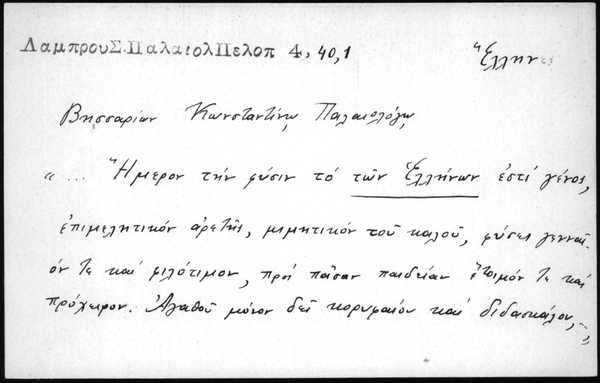 ΛαμπρουΣ.ΠαλαιολΠελοπ 4, 40,1
Ἕλλην
Βησσαρίων Κωνσταντίνῳ Παλαιολόγῳ
"... Ἥμερον τήν φύσιν τό τῶν Ἑλλήνων ἐστί γένος,
ἐπιμελητικόν ἀρετῆς, μιμητικόν τοῦ καλοῦ, φύσει γενναῖ-
όν τε καί φιλότιμον, πρός πᾶσαν παιδείαν ἕτοιμόν τε καί
πρόχειρον. Ἀγαθοῦ μόνον δεῖ κορυφαίου καί διδασκάλου,...,